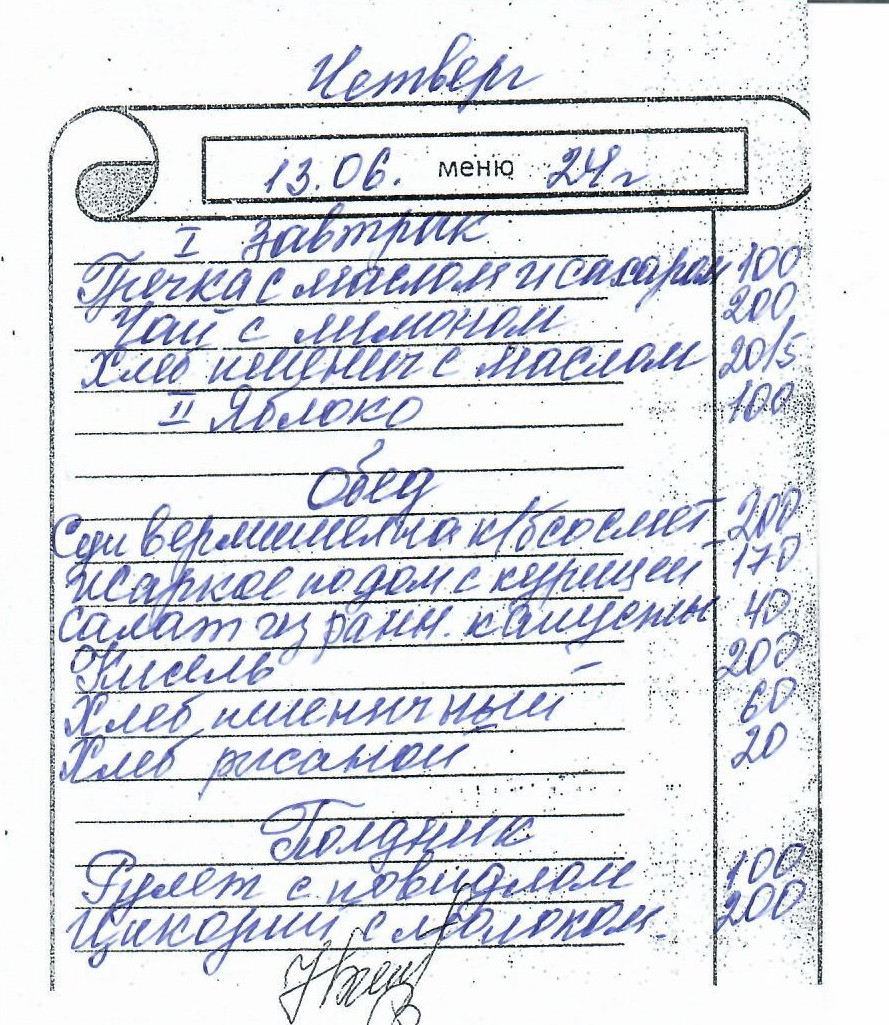 Четверг
13.06. меню 24г
I завтрак
Гречка с маслом и сахаром 100
Чай с лимоном 200
Хлеб пшенич с маслом 20/5
II Яблоко 100
Обед
Суп вермишел на к/б со смет 200
Жаркое по дом с курицей 170
Салат из ранн. капусты 40
Кисель - 200
Хлеб пшеничный 60
Хлеб ржаной 20
Полдник
Рулет с повидлом 100
Цикорий с молоком. 200